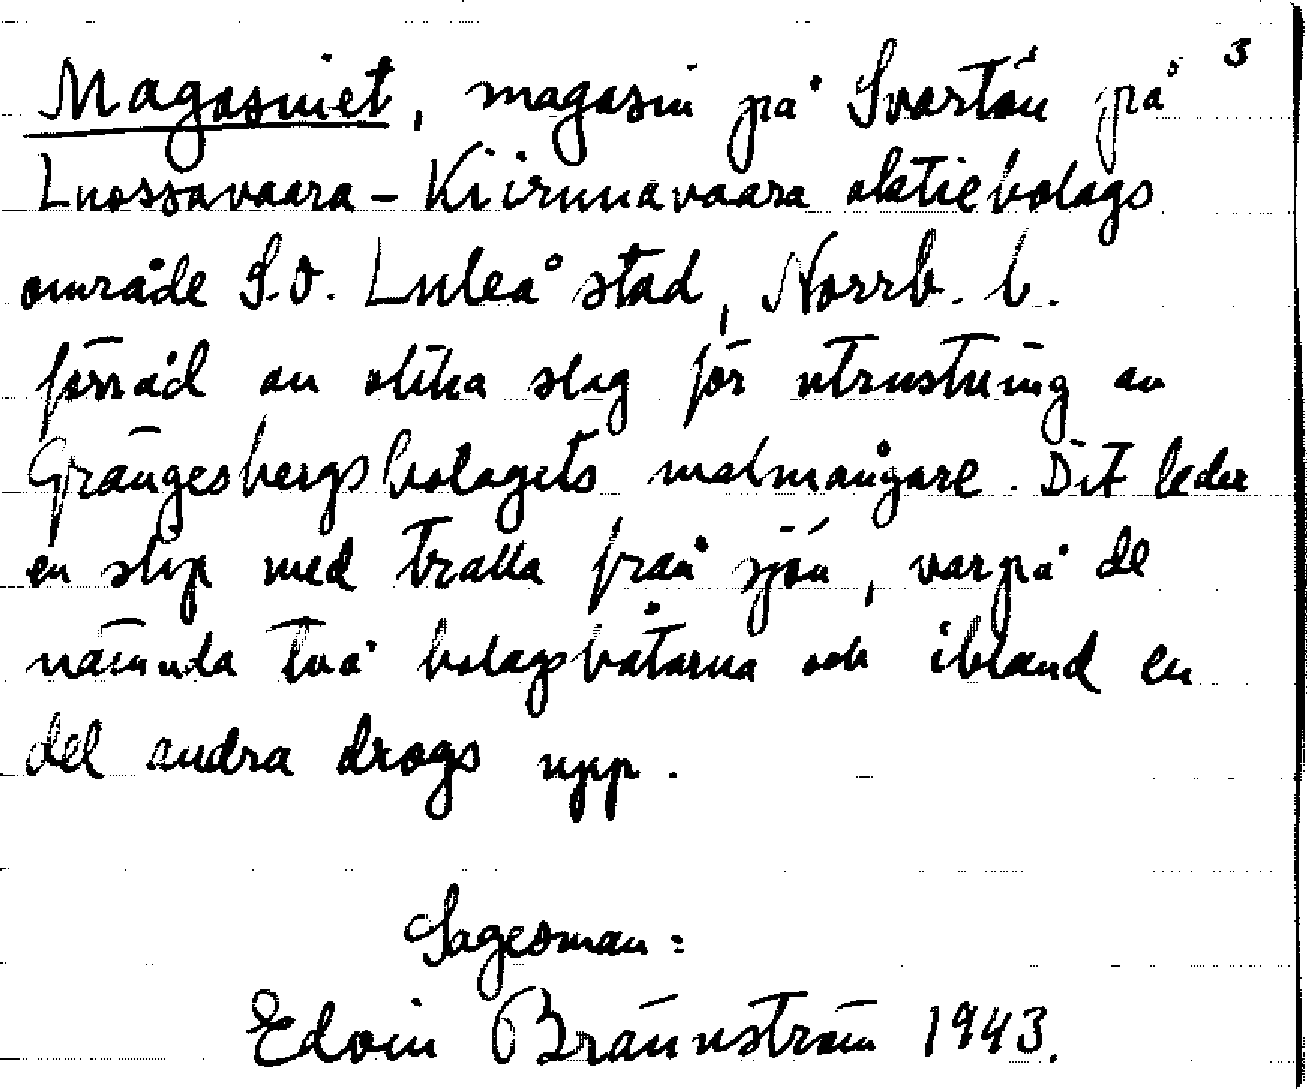 3
Magasinet, magasin på Svartön på
Luossavaara - Kiirunavaara aktiebolags
område S.O. Luleå stad, Norrb. l.
förråd av olika slag för utrustning av
Grängesbergsbolagets malmångare. Dit leder
en slip med tralla från sjön, varpå de
nämnda två bolagsbåtarna och ibland en
del andra drogs upp.
Sagesman:
Edvin Brännström 1943.